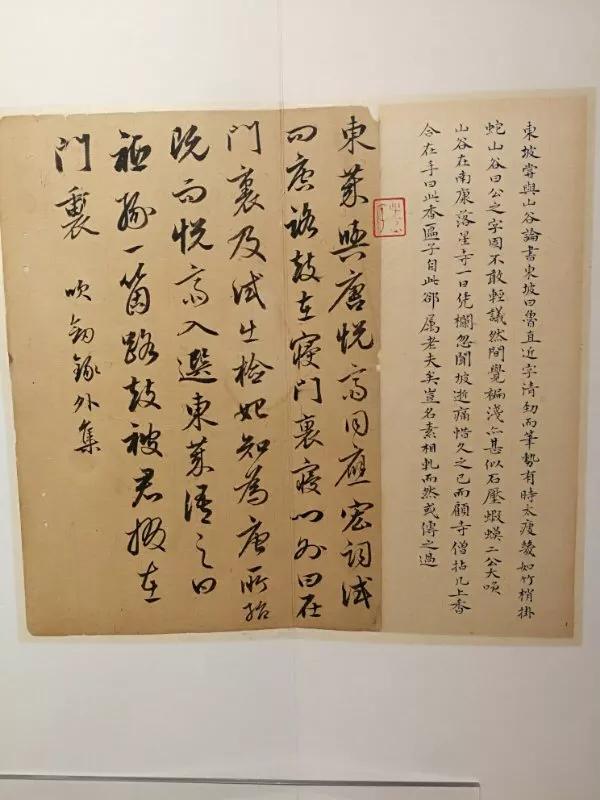 東坡嘗與山谷論書東坡曰魯直近字清勁而筆勢有時太瘦幾如竹梢掛
蛇山谷曰公之字固不敢輕議然間覺褊淺亦甚似石壓蝦蟆二公大咲
山谷在南康落星寺一日凭欄忽聞坡逝痛惜久之已而顧寺僧拈几上香
合在手曰此香匾子自此卻属老夫矣豈名素相軋而然或傳之過
東萊與唐悅齋同應宏詞試
問唐路鼓在寢門裏寢門外曰在
門裏及試出檢始知為唐所紿
既而悅齋入選東萊語之曰
秪緣一箇路鼓被君掇在
門裏 吹劍錄外集